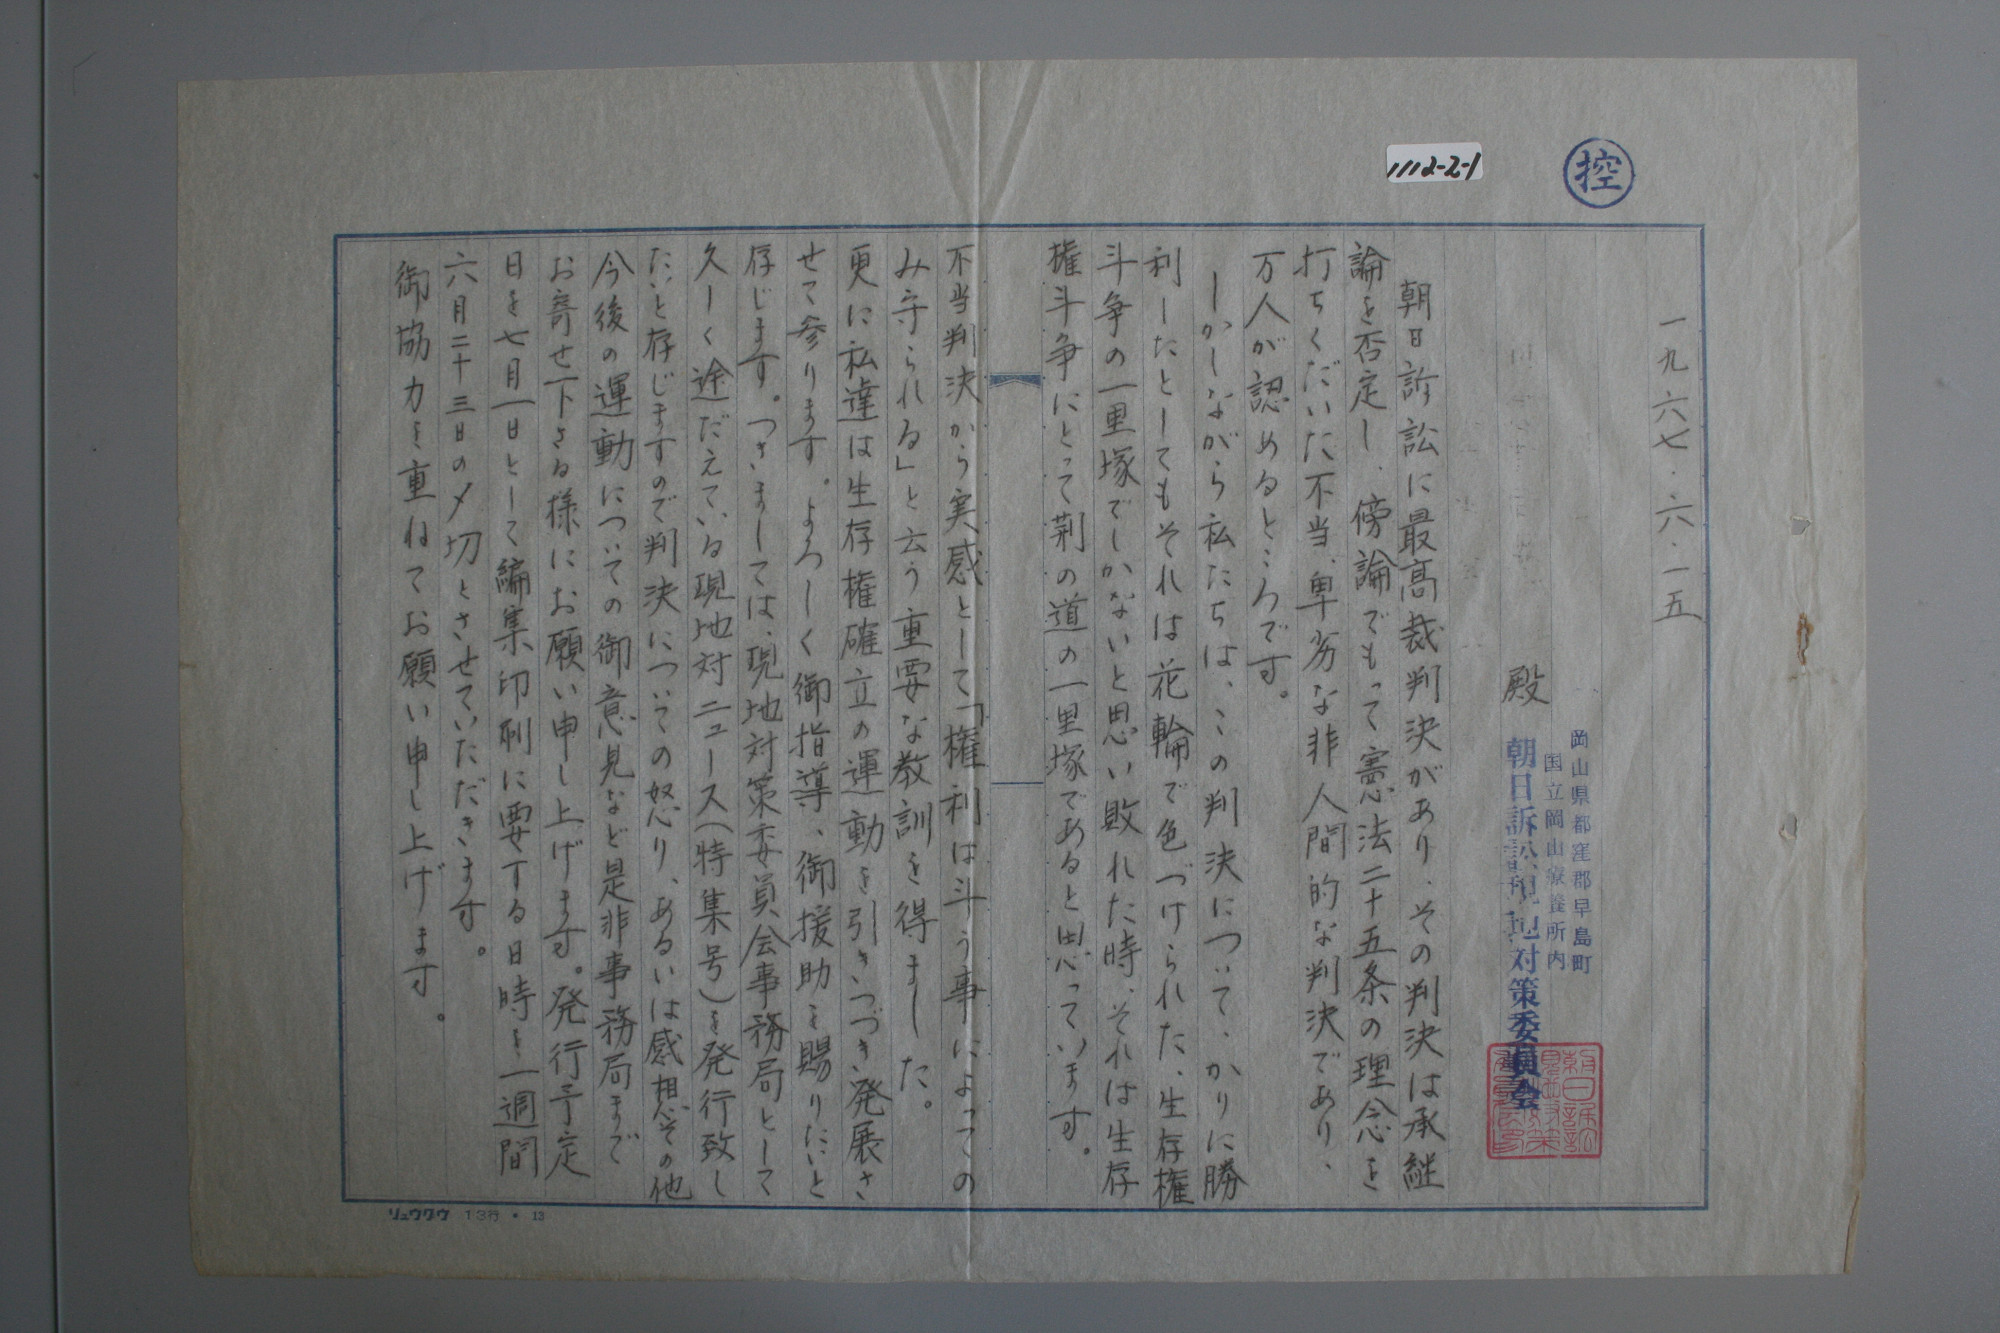 控
1112-2-1
一九六七・六・一五
岡山県都窪郡早島町
国立岡山療養所内
殿
朝日訴訟現地対策委員会
朝日訴訟に最高裁判決があり、その判決は承継
論を否定し、傍論でもって憲法二十五条の理念を
打ちくだいた不当、卑劣な非人間的な判決であり、
万人が認めるところです。
しかしながら私たちは、この判決について、かりに勝
利したとしてもそれは花輪で色づけられた、生存権
斗争の一里塚でしかないと思い敗れた時、それは生存
権斗争にとって荊の道の一里塚であると思っています。
不当判決から実感として「権利は斗う事によっての
み守られる」と云う重要な教訓を得ました。
更に私達は生存権確立の運動を引きつづき発展さ
せて参ります。よろしく御指導、御援助を賜りたいと
存じます。つきましては、現地対策委員会事務局として
久しく途だえている現地対ニュース(特集号)を発行致し
たいと存じますので判決についての怒り、あるいは感想その他
今後の運動についての御意見など是非事務局まで
お寄せ下さる様にお願い申し上げます。発行予定
日を七月一日として編集印刷に要する日時を一週間
六月二十三日の〆切とさせていただきます。
御協力を重ねてお願い申し上げます。
リュウクウ 13号・13